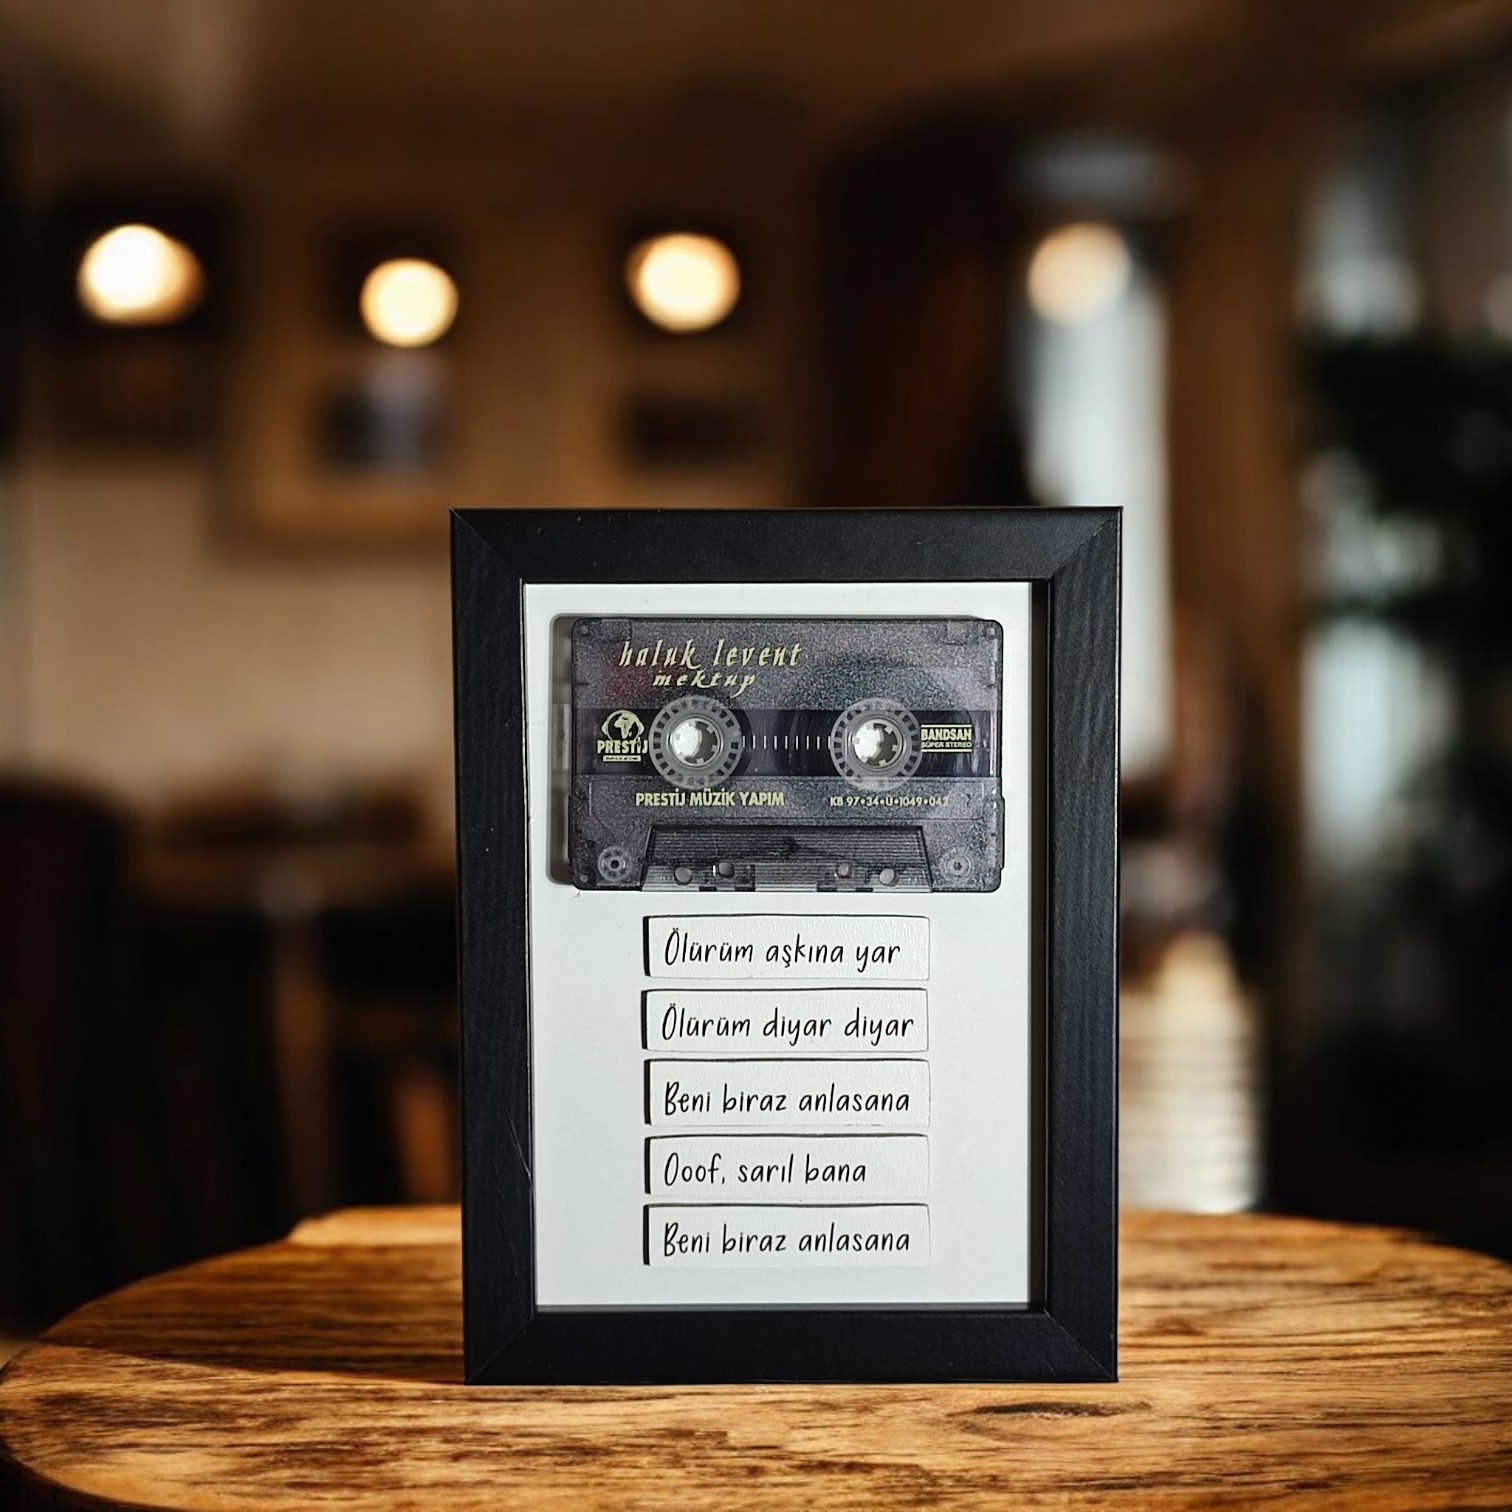 haluk levent
mektup
PRESTİJ
BANDSAN
SÜPER STEREO
PRESTİJ MÜZİK YAPIM
KB 97•34•Ü•1049•042
Ölürüm aşkına yar
Ölürüm diyar diyar
Beni biraz anlasana
Ooof, sarıl bana
Beni biraz anlasana